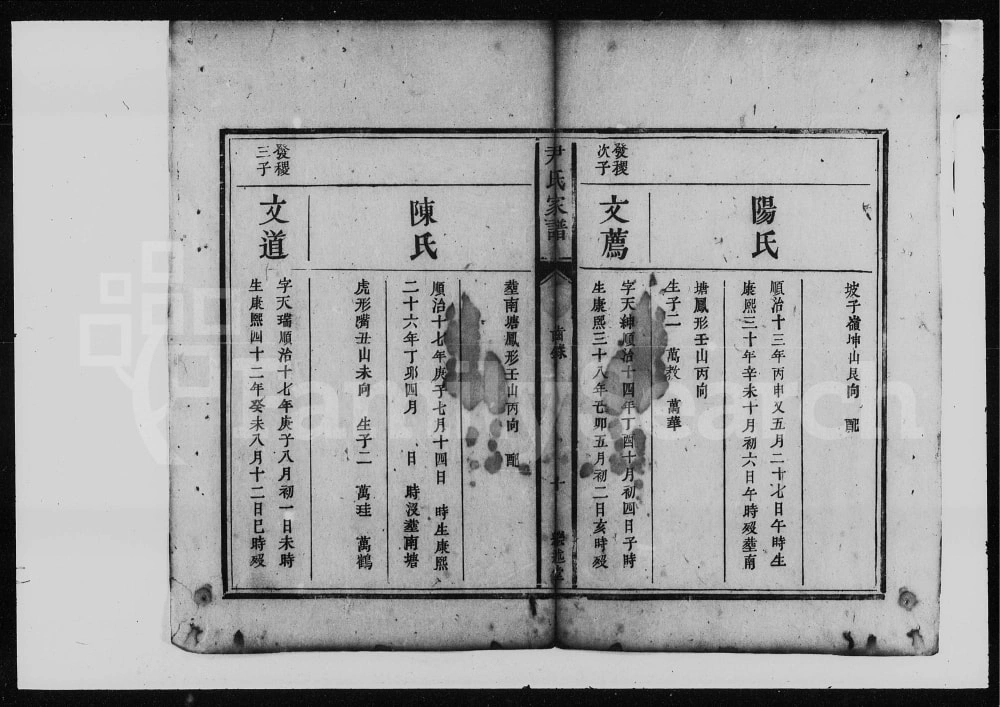 坡子嶺坤山艮向 配
陽氏
順治十三年丙申又五月二十七日午時生
康熙三十年辛未十月初六日午時歿塟南
塘鳳形壬山丙向
生子二 萬教 萬華
發稷
次子
文薦
字天練順治十四年丁酉十月初四日子時
生康熙三十八年己卯五月初二日亥時歿
尹氏家譜
十
塟南塘鳳形壬山丙向 配
陳氏
順治十七年庚子七月十四日 時生康熙
二十六年丁卯四月 日 時沒塟南塘
虎形嘴丑山未向 生子二 萬珪 萬鶴
發稷
三子
文道
字天璠順治十七年庚子八月初一日未時
生康熙四十二年癸未八月十二日巳時歿
FamilySearch